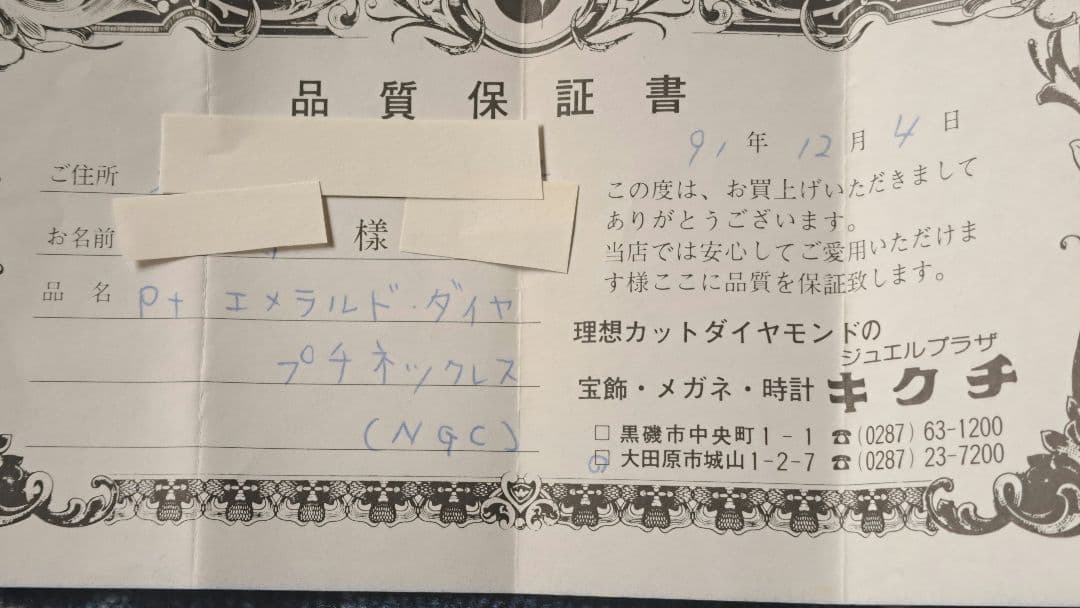 品質保証書
91年12月4日
ご住所
お名前 様
品名 Pt エメラルド・ダイヤ
プチネックレス
(NGC)
この度は、お買上げいただきまして
ありがとうございます。
当店では安心してご愛用いただけま
す様ここに品質を保証致します。
理想カットダイヤモンドの
ジュエルプラザ
宝飾・メガネ・時計 キクチ
□ 黒磯市中央町1-1 ☎(0287)63-1200
□ 大田原市城山1-2-7 ☎(0287)23-7200